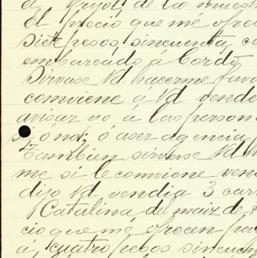 el frijol de la
el precio que me ofre
siete pesos, sincuenta, c
embarcado a Cordo
Sirvase Vd hacerme fav
conviene á Vd vende
avisar vó a las person
o no, ó aser agencia
Tambien sirvase Vd
me si le conviene ven
dijo Vd vendia 3 carr
Catalina, de maiz de
cio que me ofrecen pa
á, cuatro pesos sincuen